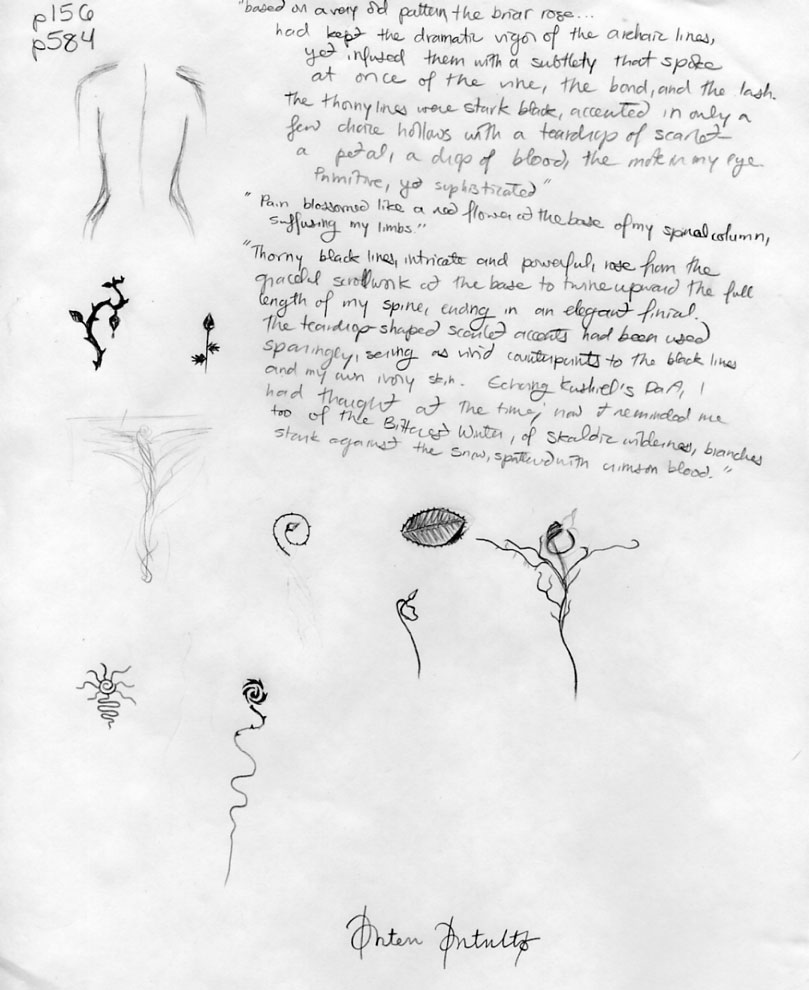 p156
p584
"based on a very old pattern the briar rose...
had kept the dramatic vigor of the archaic lines,
yet infused them with a subtlety that spoke
at once of the vine, the bond, and the lash.
The thorny lines were stark black, accented in only a
few choice hollows with a teardrop of scarlet–
a petal, a drop of blood, the mote in my eye.
Primitive, yet sophisticated"
"Pain blossomed like a red flower at the base of my spinal column,
suffusing my limbs."
"Thorny black lines, intricate and powerful, rose from the
graceful scrollwork at the base to twine upward the full
length of my spine, ending in an elegant finial.
The teardrop-shaped scarlet accents had been used
sparingly, serving as vivid counterpoints to the black lines
and my own ivory skin. Echoing Kushiel's Dart, I
had thought at the time; now it reminded me
too of the Bitterest Winter, of Skaldic wilderness, branches
stark against the snow, spattered with crimson blood."